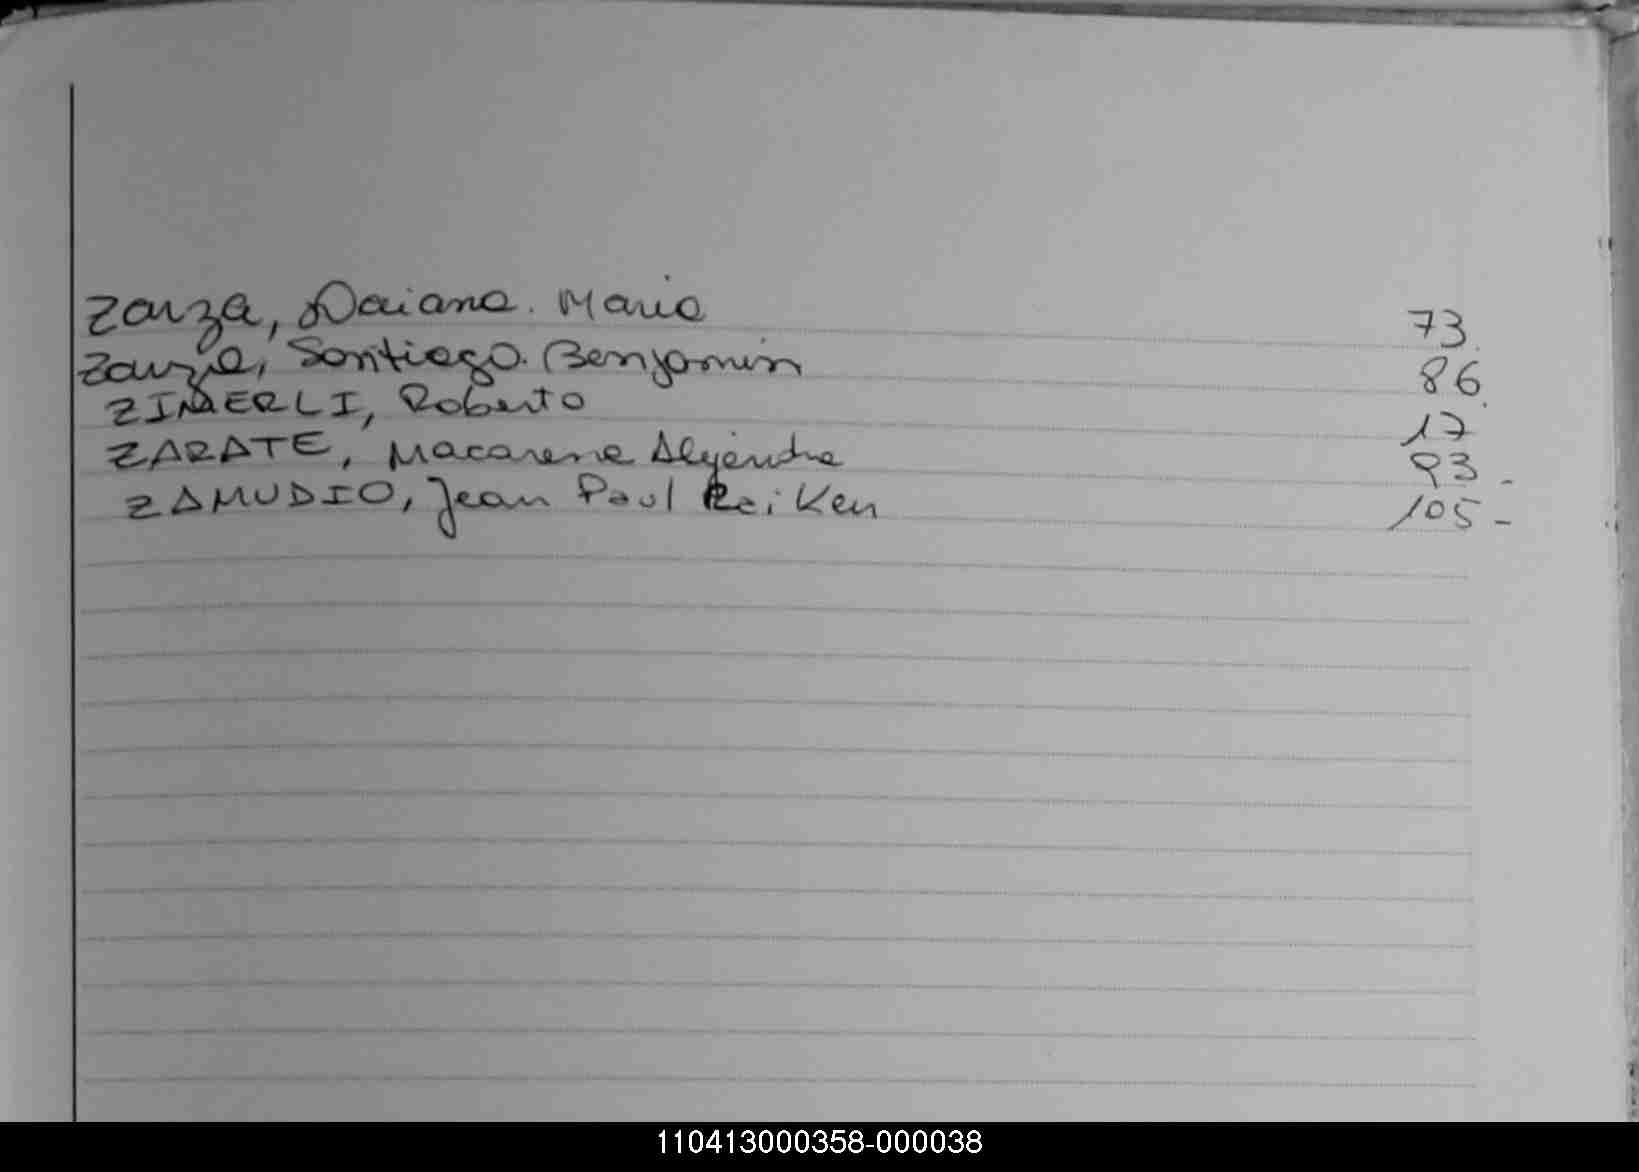 Zarza, Daiana. Maria 73.
Zarza, Santiago. Benjamin 86.
ZIMERLI, Roberto 17
ZARATE, Macarena Alejandra 93.
ZAMUDIO, Jean Paul Rei Ken 105-
110413000358-000038